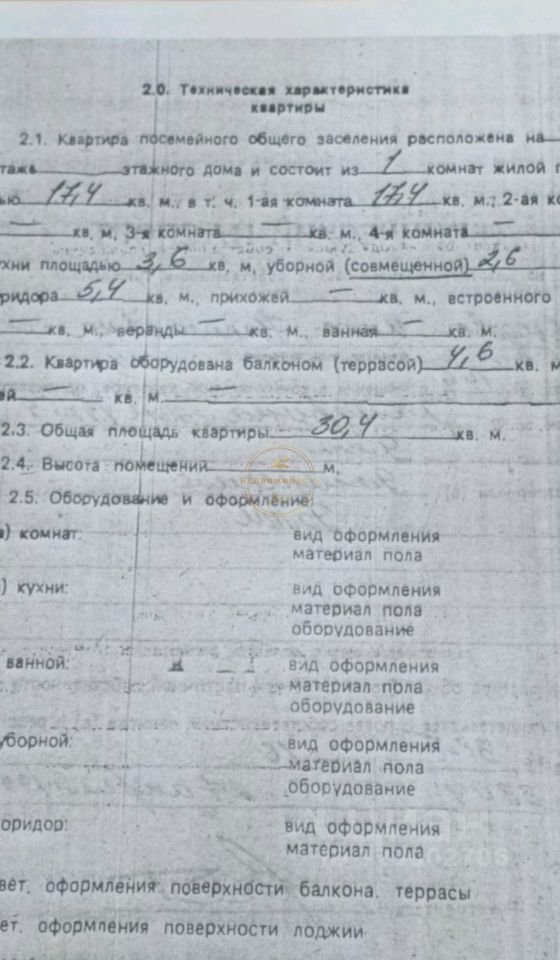 2.0. Техническая характеристика
квартиры
2.1. Квартира посемейного общего заселения расположена на
этажного дома и состоит из 1 комнат жилой
17,4 кв. м.; в т. ч. 1-ая комната 17,4 кв. м.; 2-ая
— кв, м, 3-я комната — кв. м., 4-я комната —
площадью 3,6 кв, м, уборной (совмещенной) 2,6
5,4 кв. м., прихожей — кв. м., встроенного
— кв. м.; веранды — кв. м., ванная — кв. м.
2.2. Квартира оборудована балконом (террасой) 4,6 кв. м
— кв. м. —
2.3. Общая площадь квартиры 30,4 кв. м.
2.4. Высота помещений м.
недвижимость
2.5. Оборудование и оформление:
) комнат: вид оформления
материал пола
) кухни: вид оформления
материал пола
оборудование
ванной: вид оформления
материал пола
оборудование
уборной: вид оформления
материал пола
оборудование
оридор: вид оформления
материал пола
вет. оформления поверхности балкона. террасы
ет. оформления поверхности лоджии